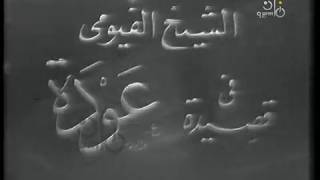 الشيخ الفيومى
فى
قصيدة
عودة